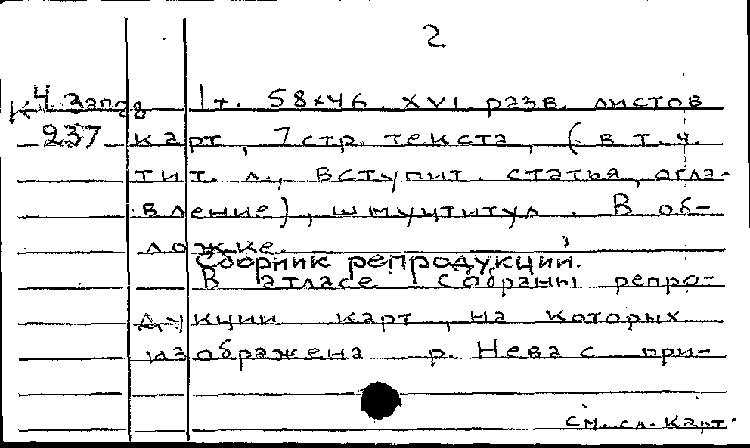 2.
К 4 Запад 1 т. 58×46 XVI разв. листов
237 карт, 7 стр. текста, (в т.ч.
тит. л., вступит. статья, огла-
вление), шмуцтитул. В об-
ложке.
Сборник репродукций.
В атласе собраны репро-
дукции карт, на которых
изображена р. Нева с при-
см. сл. карт.